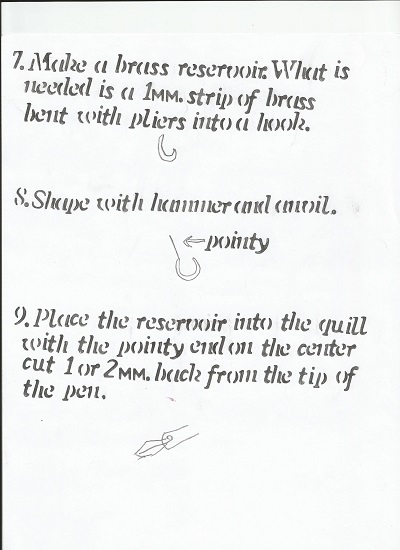 7. Make a brass reservoir. What is
needed is a 1MM. strip of brass
bent with pliers into a hook.
8. Shape with hammer and anvil.
pointy
9. Place the reservoir into the quill
with the pointy end on the center
cut 1 or 2MM. back from the tip of
the pen.